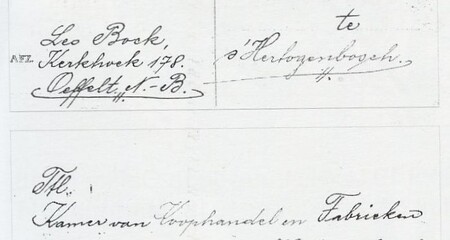 te
Leo Bock,
AFZ. Kerkhoek 178.
Oeffelt, N.-B.
s'Hertogenbosch.
Ttl.
Kamer van Koophandel en Fabrieken